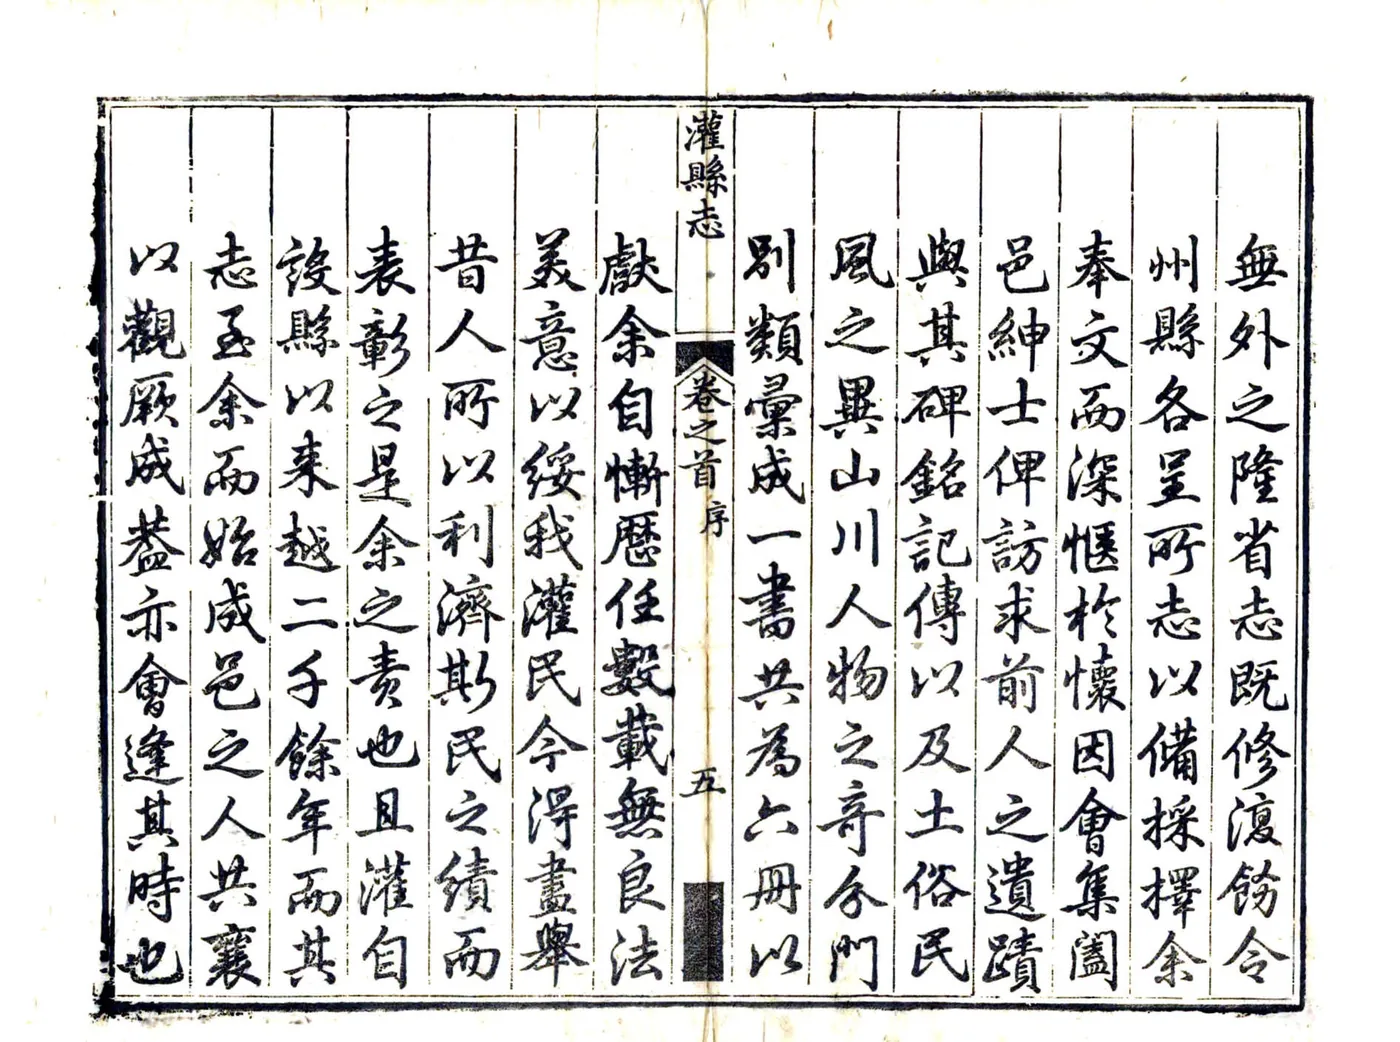 無外之隆省志既修復飭令
州縣各呈所志以備採擇余
奉文而深愜於懷因會集闔
邑紳士俾訪求前人之遺蹟
與其碑銘記傳以及土俗民
風之異山川人物之奇分門
別類彙成一書共為六冊以
灌縣志
卷之首
序
五
獻余自慚歷任數載無良法
美意以綏我灌民今得盡舉
昔人所以利濟斯民之績而
表彰之是余之責也且灌自
設縣以来越二千餘年而其
志至余而始成邑之人共襄
以觀厥成葢亦會逢其時也